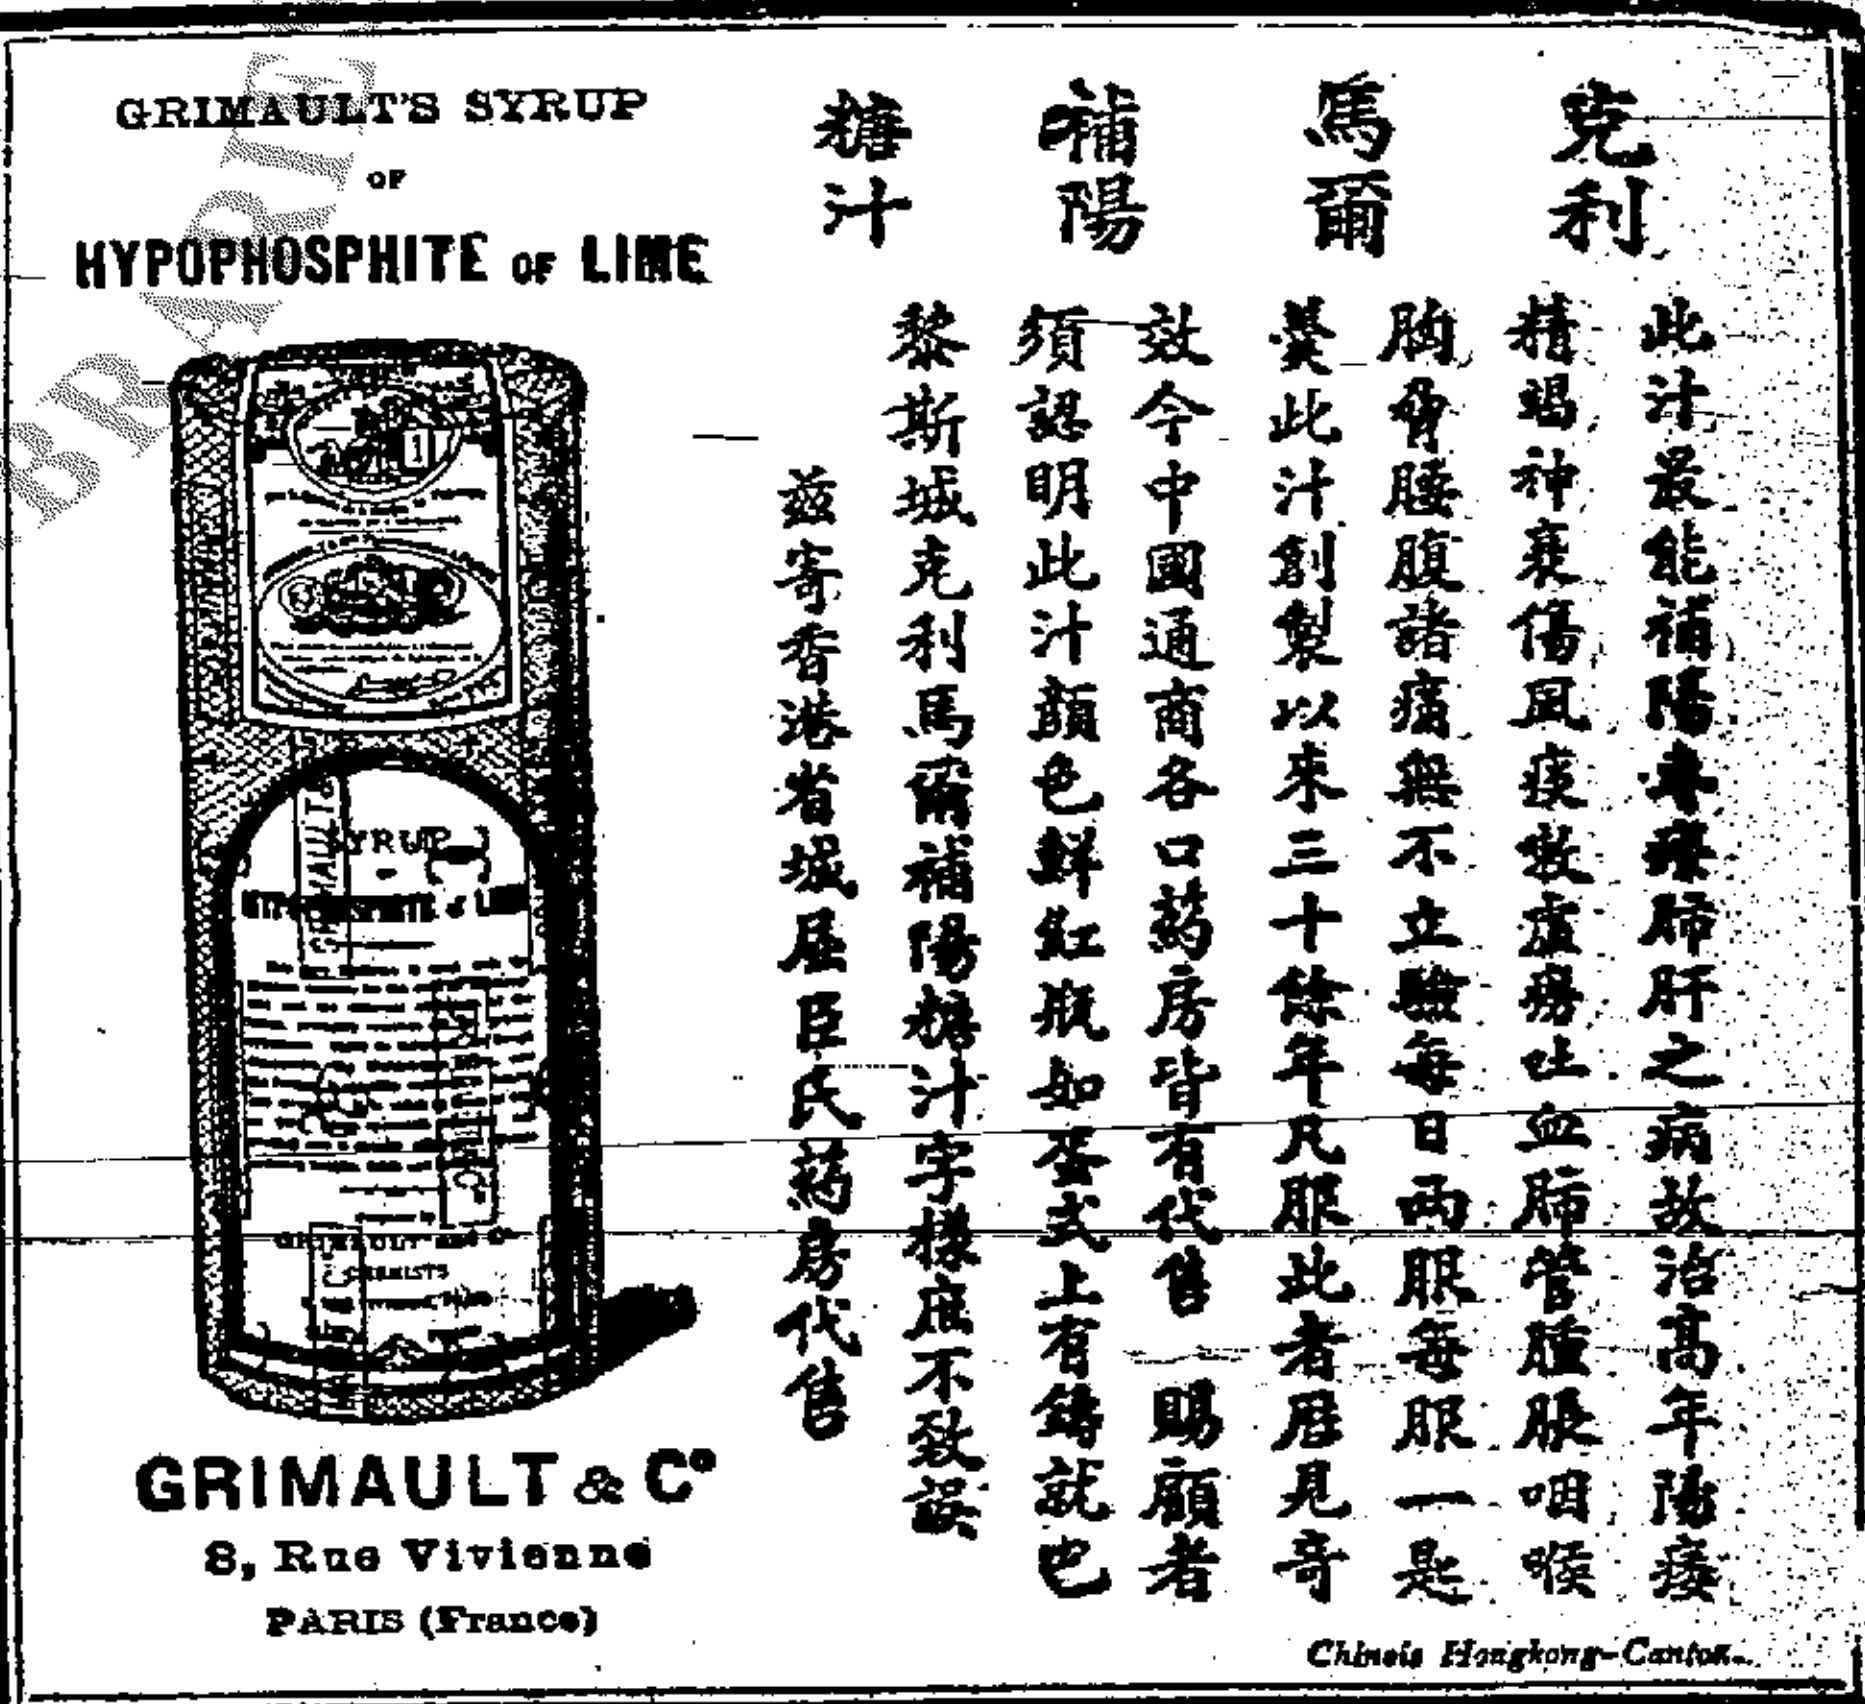 GRIMAULT'S SYRUP
OF
HYPOPHOSPHITE OF LIME
SYRUP
GRIMAULT & Cº
8, Rue Vivienne
PARIS (France)
克利
馬爾
補陽
糖汁
此汁最能補陽專療肺肝之病故治高年陽痿
精竭神衰傷風痰欬虛癆吐血肺管腫脹咽喉
胸脅腰腹諸痛無不立驗每日兩服每服一匙
羹此汁創製以來三十餘年凡服此者歷見奇
效今中國通商各口葯房皆有代售 賜顧者
須認明此汁顏色鮮紅瓶如蛋式上有鑄就巴
黎斯城克利馬爾補陽糖汁字樣庶不致誤
茲寄香港省城屈臣氏葯房代售
Chinois Hongkong-Canton